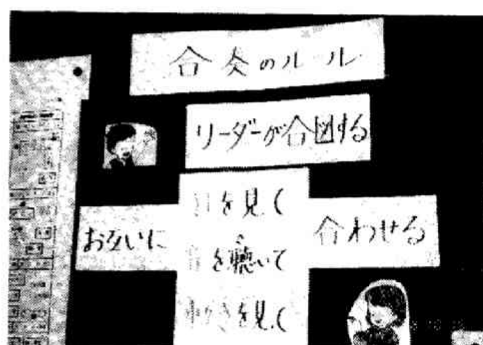 合奏のルール
リーダーが合図する
お互いに
目を見て
音を聴いて
動きを見て
合わせる